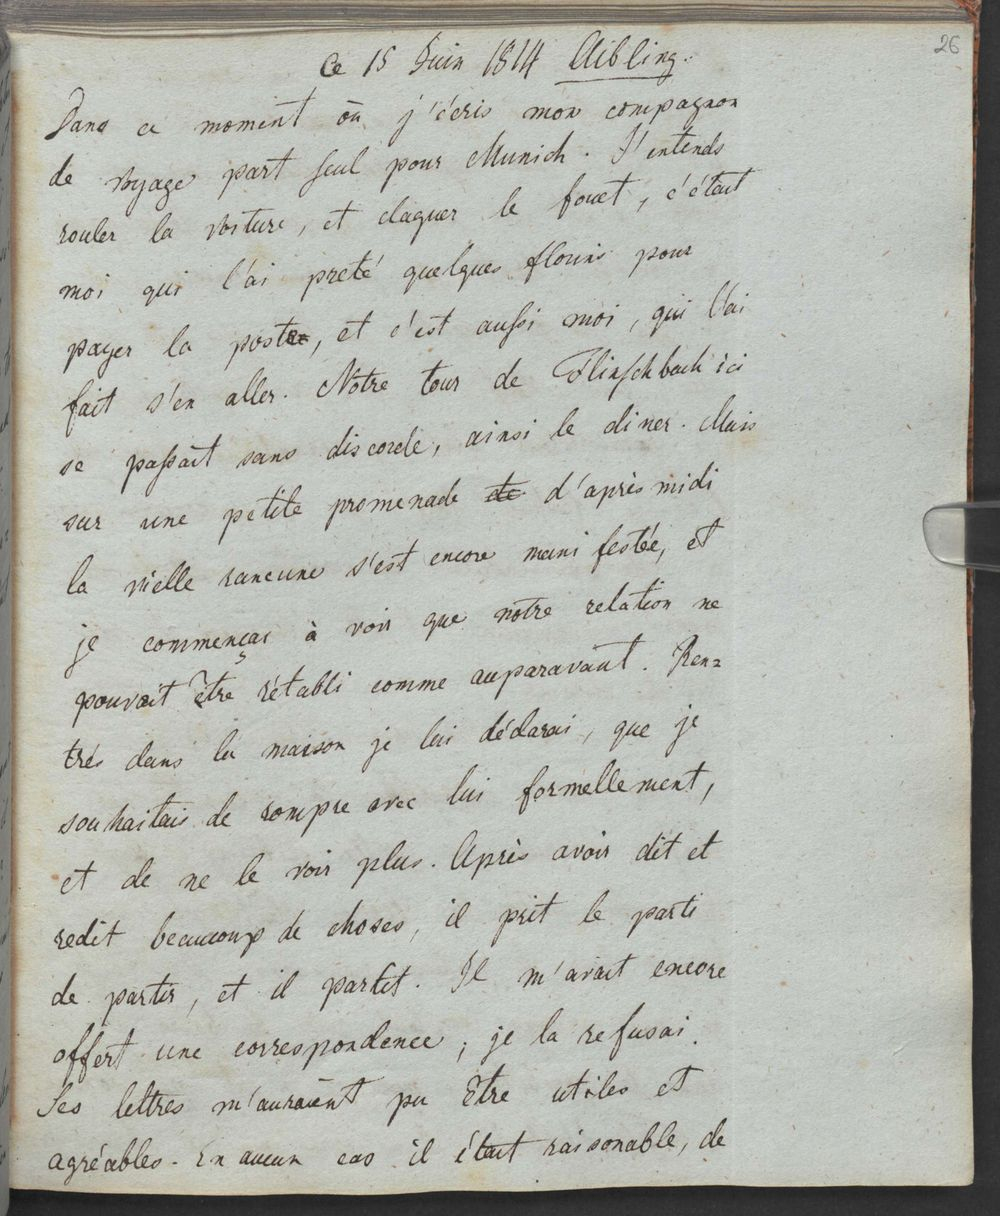 26
Ce 15 Juin 1814 Aibling.
Dans ce moment où j'écris mon compagnon
de voyage part seul pour Munich. J'entends
rouler la voiture, et claquer le fouet, c'était
moi qui l'ai preté quelques florins pour
payer la poste, et c'est aussi moi, qui l'ai
fait s'en aller. Notre tour de Flinschbach ici
se passait sans discorde, ainsi le diner. Mais
sur une petite promenade de d'après midi
la vielle rancune s'est encore manifestée, et
je commençai à voir que notre relation ne
pouvait être rétabli comme auparavant. Ren=
trés dans la maison je lui déclarai, que je
souhaitais de rompre avec lui formellement,
et de ne le voir plus. Après avoir dit et
redit beaucoup de choses, il prit le parti
de partir, et il partit. Il m'avait encore
offert une correspondence; je la refusai.
Ses lettres m'auraient pu être utiles et
agréables. En aucun cas il était raisonable, de